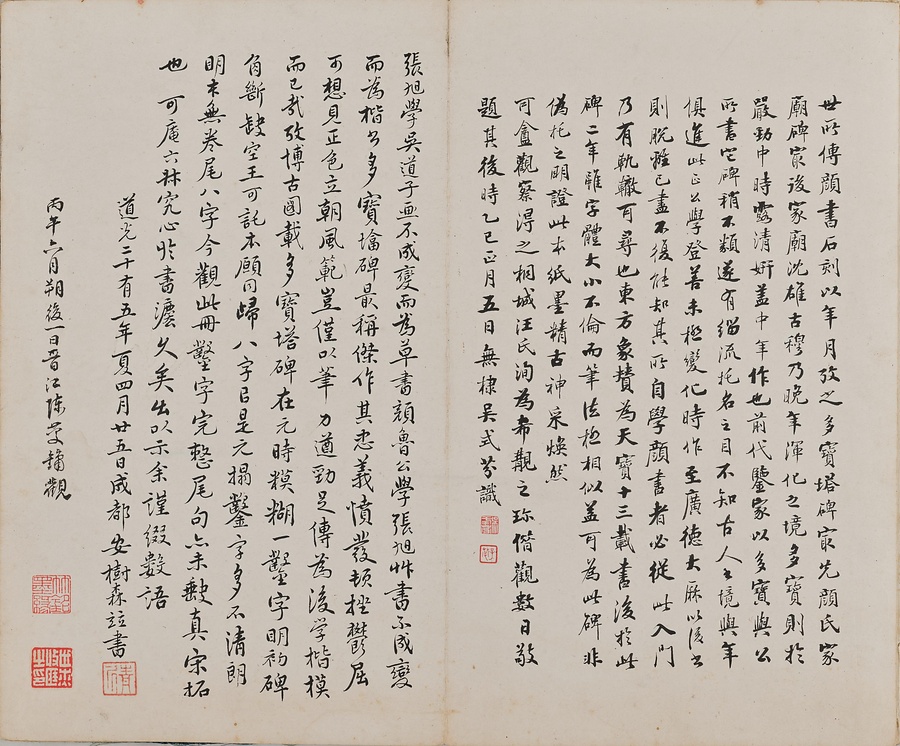 世所傳顏書石刻以年月攷之多寶塔碑㝡先顏氏家
廟碑㝡後家廟沈雄古穆乃晚年渾化之境多寶則於
嚴勁中時露清姸蓋中年作也前代鑒家以多寶與公
所書它碑稍不類遂有緇流托名之目不知古人之境與年
俱進此正公學登善未極變化時作至廣德大厤以後書
則脫離已盡不復能知其所自學顏書者必從此入門
乃有軌轍可尋也東方象贊為天寶十三載書後於此
碑二年雖字體大小不倫而筆法極相似蓋可為此碑非
偽托之明證此本紙墨精古神采煥然
可盦觀察淂之桐城汪氏洵為希覯之珎偕觀數日敬
題其後時乙巳正月五日無棣吳式芬識
張旭學吳道子画不成變而為草書顏魯公學張旭艸書不成變
而為楷公多寶塔碑最稱傑作其忠義憤發頓挫鬱屈
可想見正色立朝風範豈僅以筆力遒勁足傳為後學楷模
而已哉攷博古圖載多寶塔碑在元時糢糊一鑿字明初碑
角斷缺空王可託本願同歸八字㠯是元搨鑿字多不清朗
明本無卷尾八字今觀此冊鑿字完整尾句亦未缺真宋拓
也可庵六兄究心於書灋久矣出以示余謹綴數語
道光二十有五年夏四月廿五日成都安樹森竝書
丙午六月朔後一日晉江陳慶鏞觀